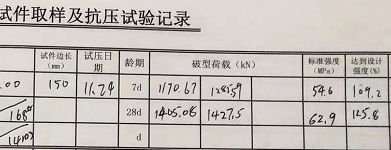 试件取样及抗压试验记录
试件边长 (mm) 试压日期 龄期 破型荷载（kN） 标准强度 (MPa) 达到设计强度(%)
00 150 11.24 7d 1170.67 1285.59 54.6 109.2
28d 1405.08 1427.5 62.9 125.8
d